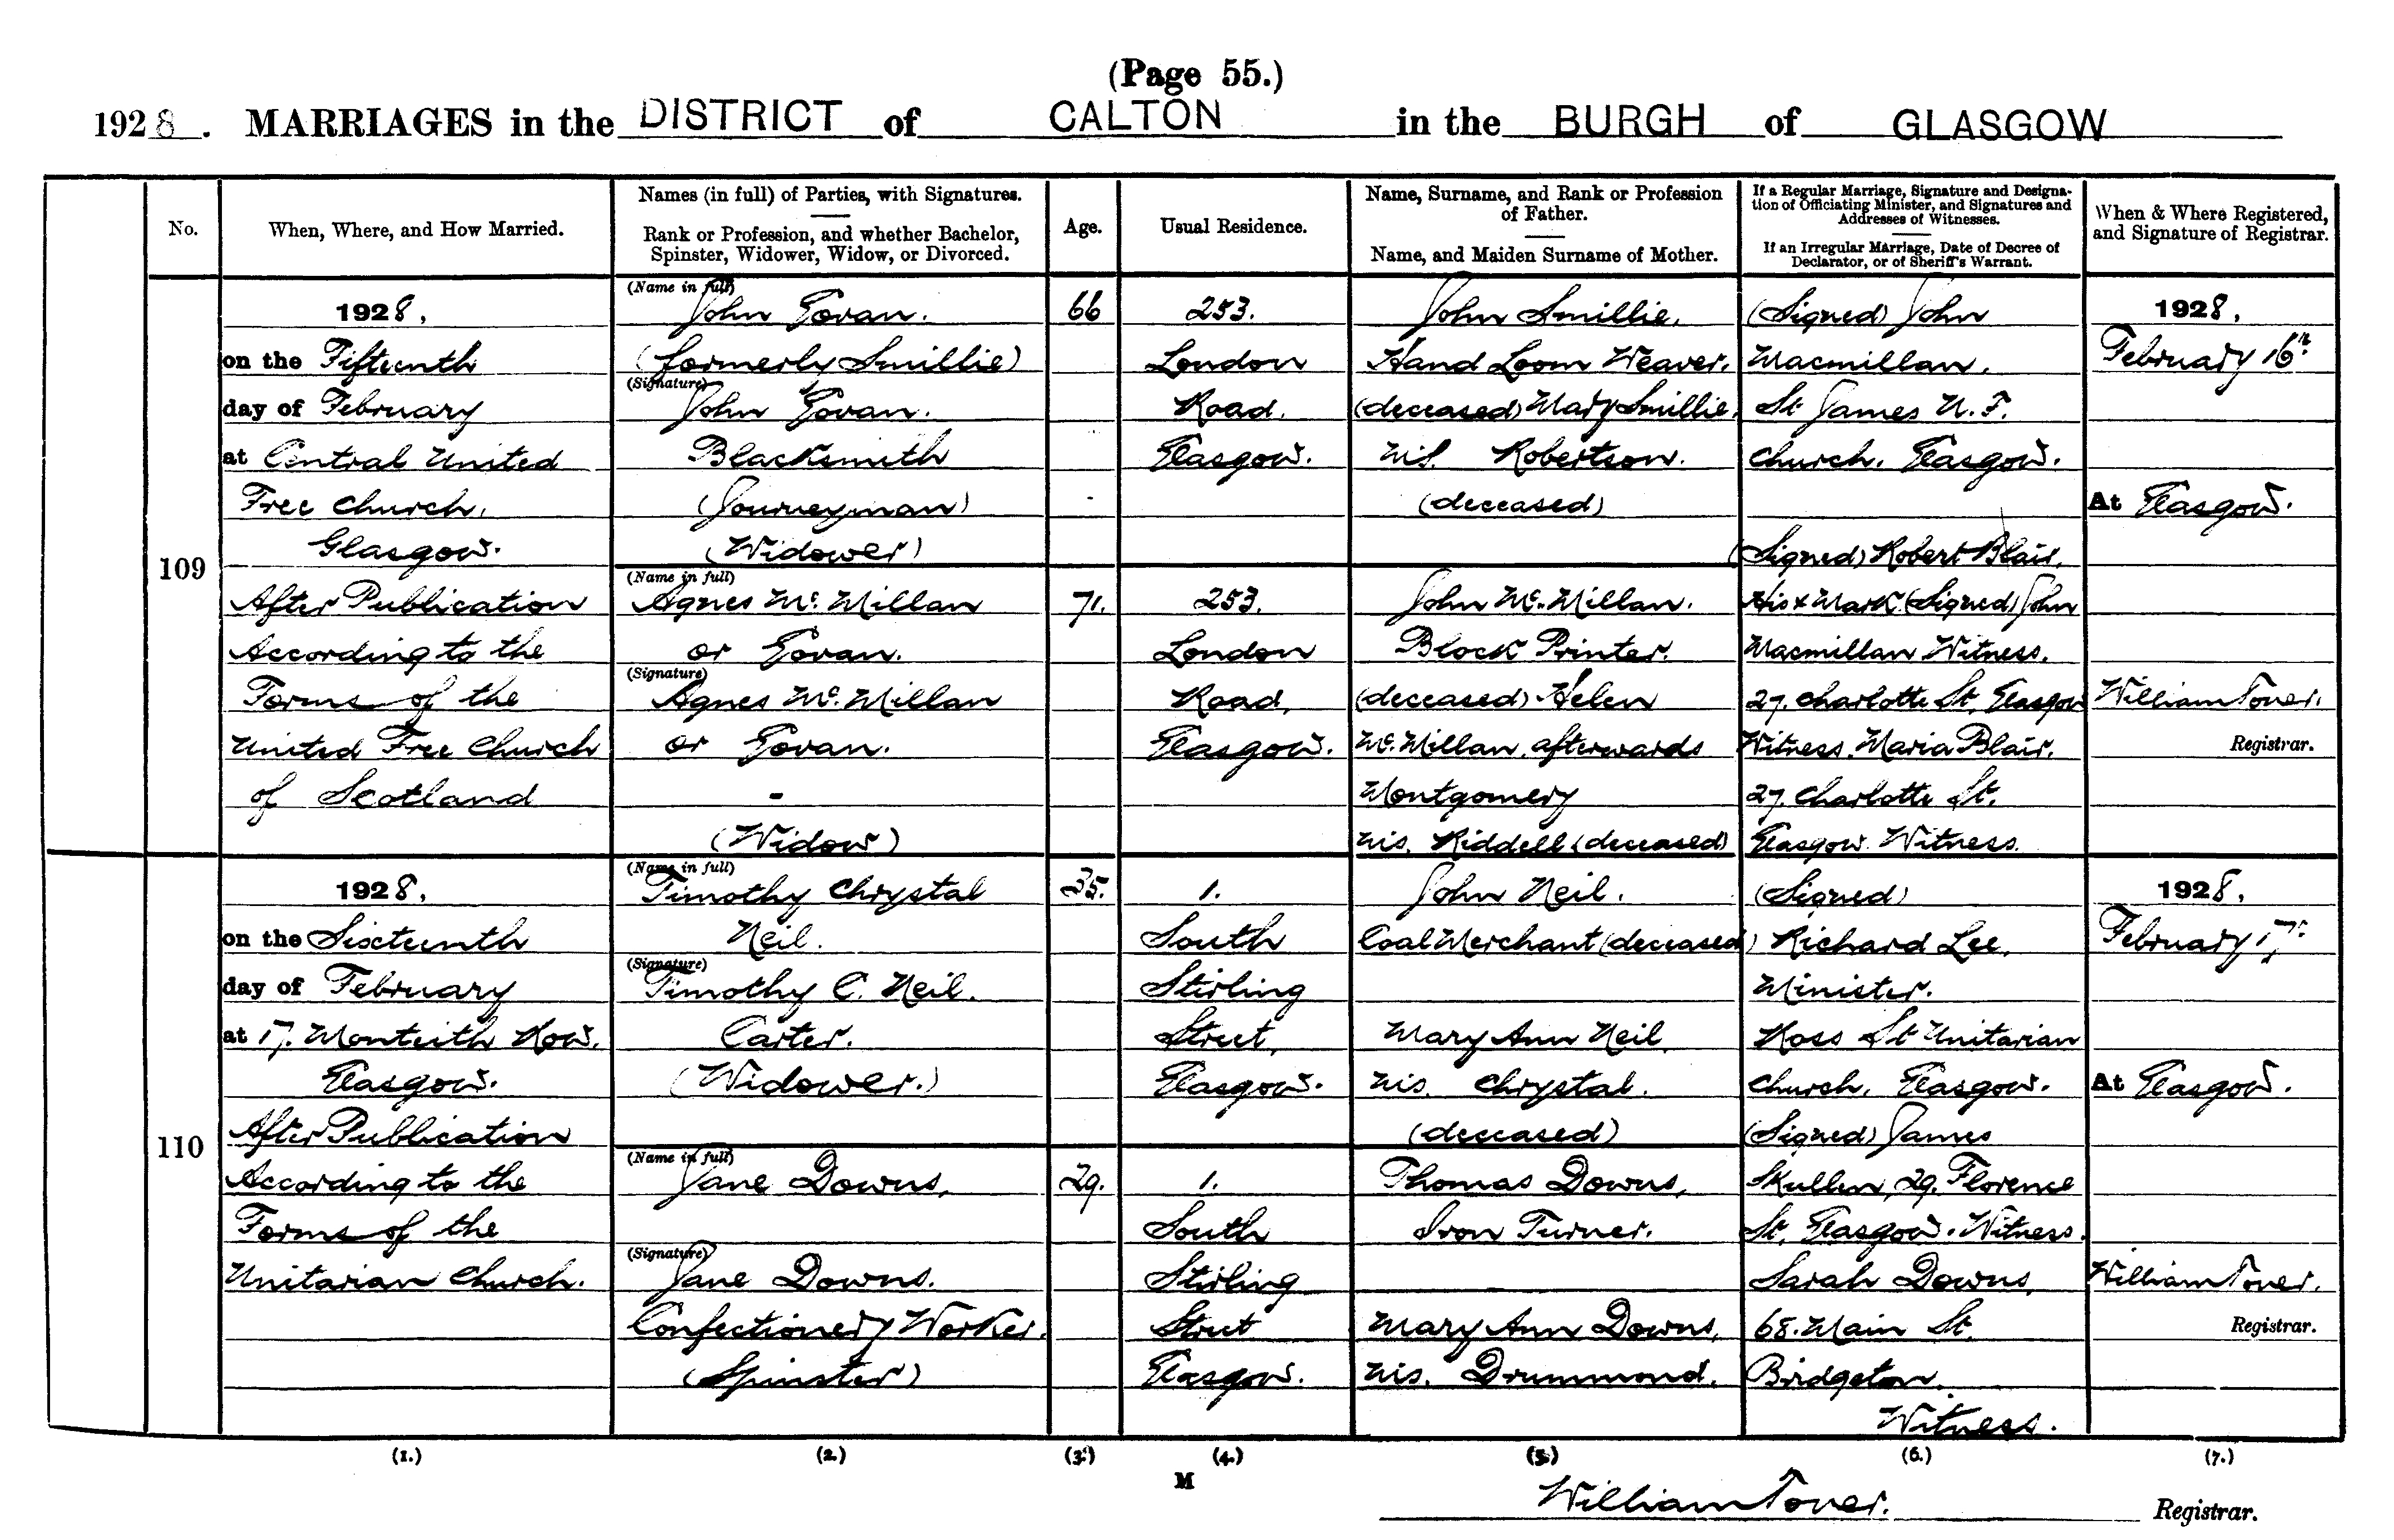 (Page 55.)
1928. MARRIAGES in the DISTRICT of CALTON in the BURGH of GLASGOW
No.
When, Where, and How Married.
Names (in full) of Parties, with Signatures.
Rank or Profession, and whether Bachelor,
Spinster, Widower, Widow, or Divorced.
Age.
Usual Residence.
Name, Surname, and Rank or Profession
of Father.
Name, and Maiden Surname of Mother.
If a Regular Marriage, Signature and Designa-
tion of Officiating Minister, and Signatures and
Addresses of Witnesses.
If an Irregular Marriage, Date of Decree of
Declarator, or of Sheriff's Warrant.
When & Where Registered,
and Signature of Registrar.
109
1928,
on the Fifteenth
day of February
at Central United
Free Church,
Glasgow.
After Publication
According to the
Forms of the
United Free Church
of Scotland
(Name in full)
John Govan.
(formerly Smillie)
(Signature)
John Govan.
Blacksmith
(Journeyman)
(Widower)
66
253.
London
Road.
Glasgow.
John Smillie,
Hand Loom Weaver.
(deceased) Mary Smillie,
M.S. Robertson.
(deceased)
(Signed) John
Macmillan.
St James U. F.
Church. Glasgow.
(Signed) Robert Blair.
His x Mark (Signed) John
Macmillan Witness.
27. Charlotte St. Glasgow
Witness. Maria Blair.
27. Charlotte St.
Glasgow. Witness.
1928,
February 16th.
At Glasgow.
William Toner.
Registrar.
(Name in full)
Agnes Mc. Millan
or Govan.
(Signature)
Agnes Mc. Millan
or Govan.
-
(Widow)
71.
253.
London
Road,
Glasgow.
John Mc. Millan.
Block Printer.
(deceased) Helen
Mc. Millan, afterwards
Montgomery
M.S. Riddell (deceased)
110
1928,
on the Sixteenth
day of February
at 17. Monteith Row.
Glasgow.
After Publication
According to the
Forms of the
Unitarian Church.
(Name in full)
Timothy Chrystal
Neil.
(Signature)
Timothy C. Neil.
Carter.
(Widower.)
35.
1.
South
Stirling
Street,
Glasgow.
John Neil.
Coal Merchant (deceased)
Mary Ann Neil
M.S. Chrystal.
(deceased)
(Signed)
Richard Lee,
Minister.
Ross St Unitarian
Church, Glasgow.
(Signed) James
Skullen, 29. Florence
St. Glasgow. Witness.
Sarah Downs,
68. Main St.
Bridgeton.
Witness.
1928,
February 17th.
At Glasgow.
William Toner.
Registrar.
(Name in full)
Jane Downs,
(Signature)
Jane Downs.
Confectionery Worker.
(Spinster)
29.
1.
South
Stirling
Street
Glasgow.
Thomas Downs,
Iron Turner.
Mary Ann Downs,
M.S. Drummond.
(1.) (2.) (3.) (4.) (5.) (6.) (7.)
M
William Toner. Registrar.